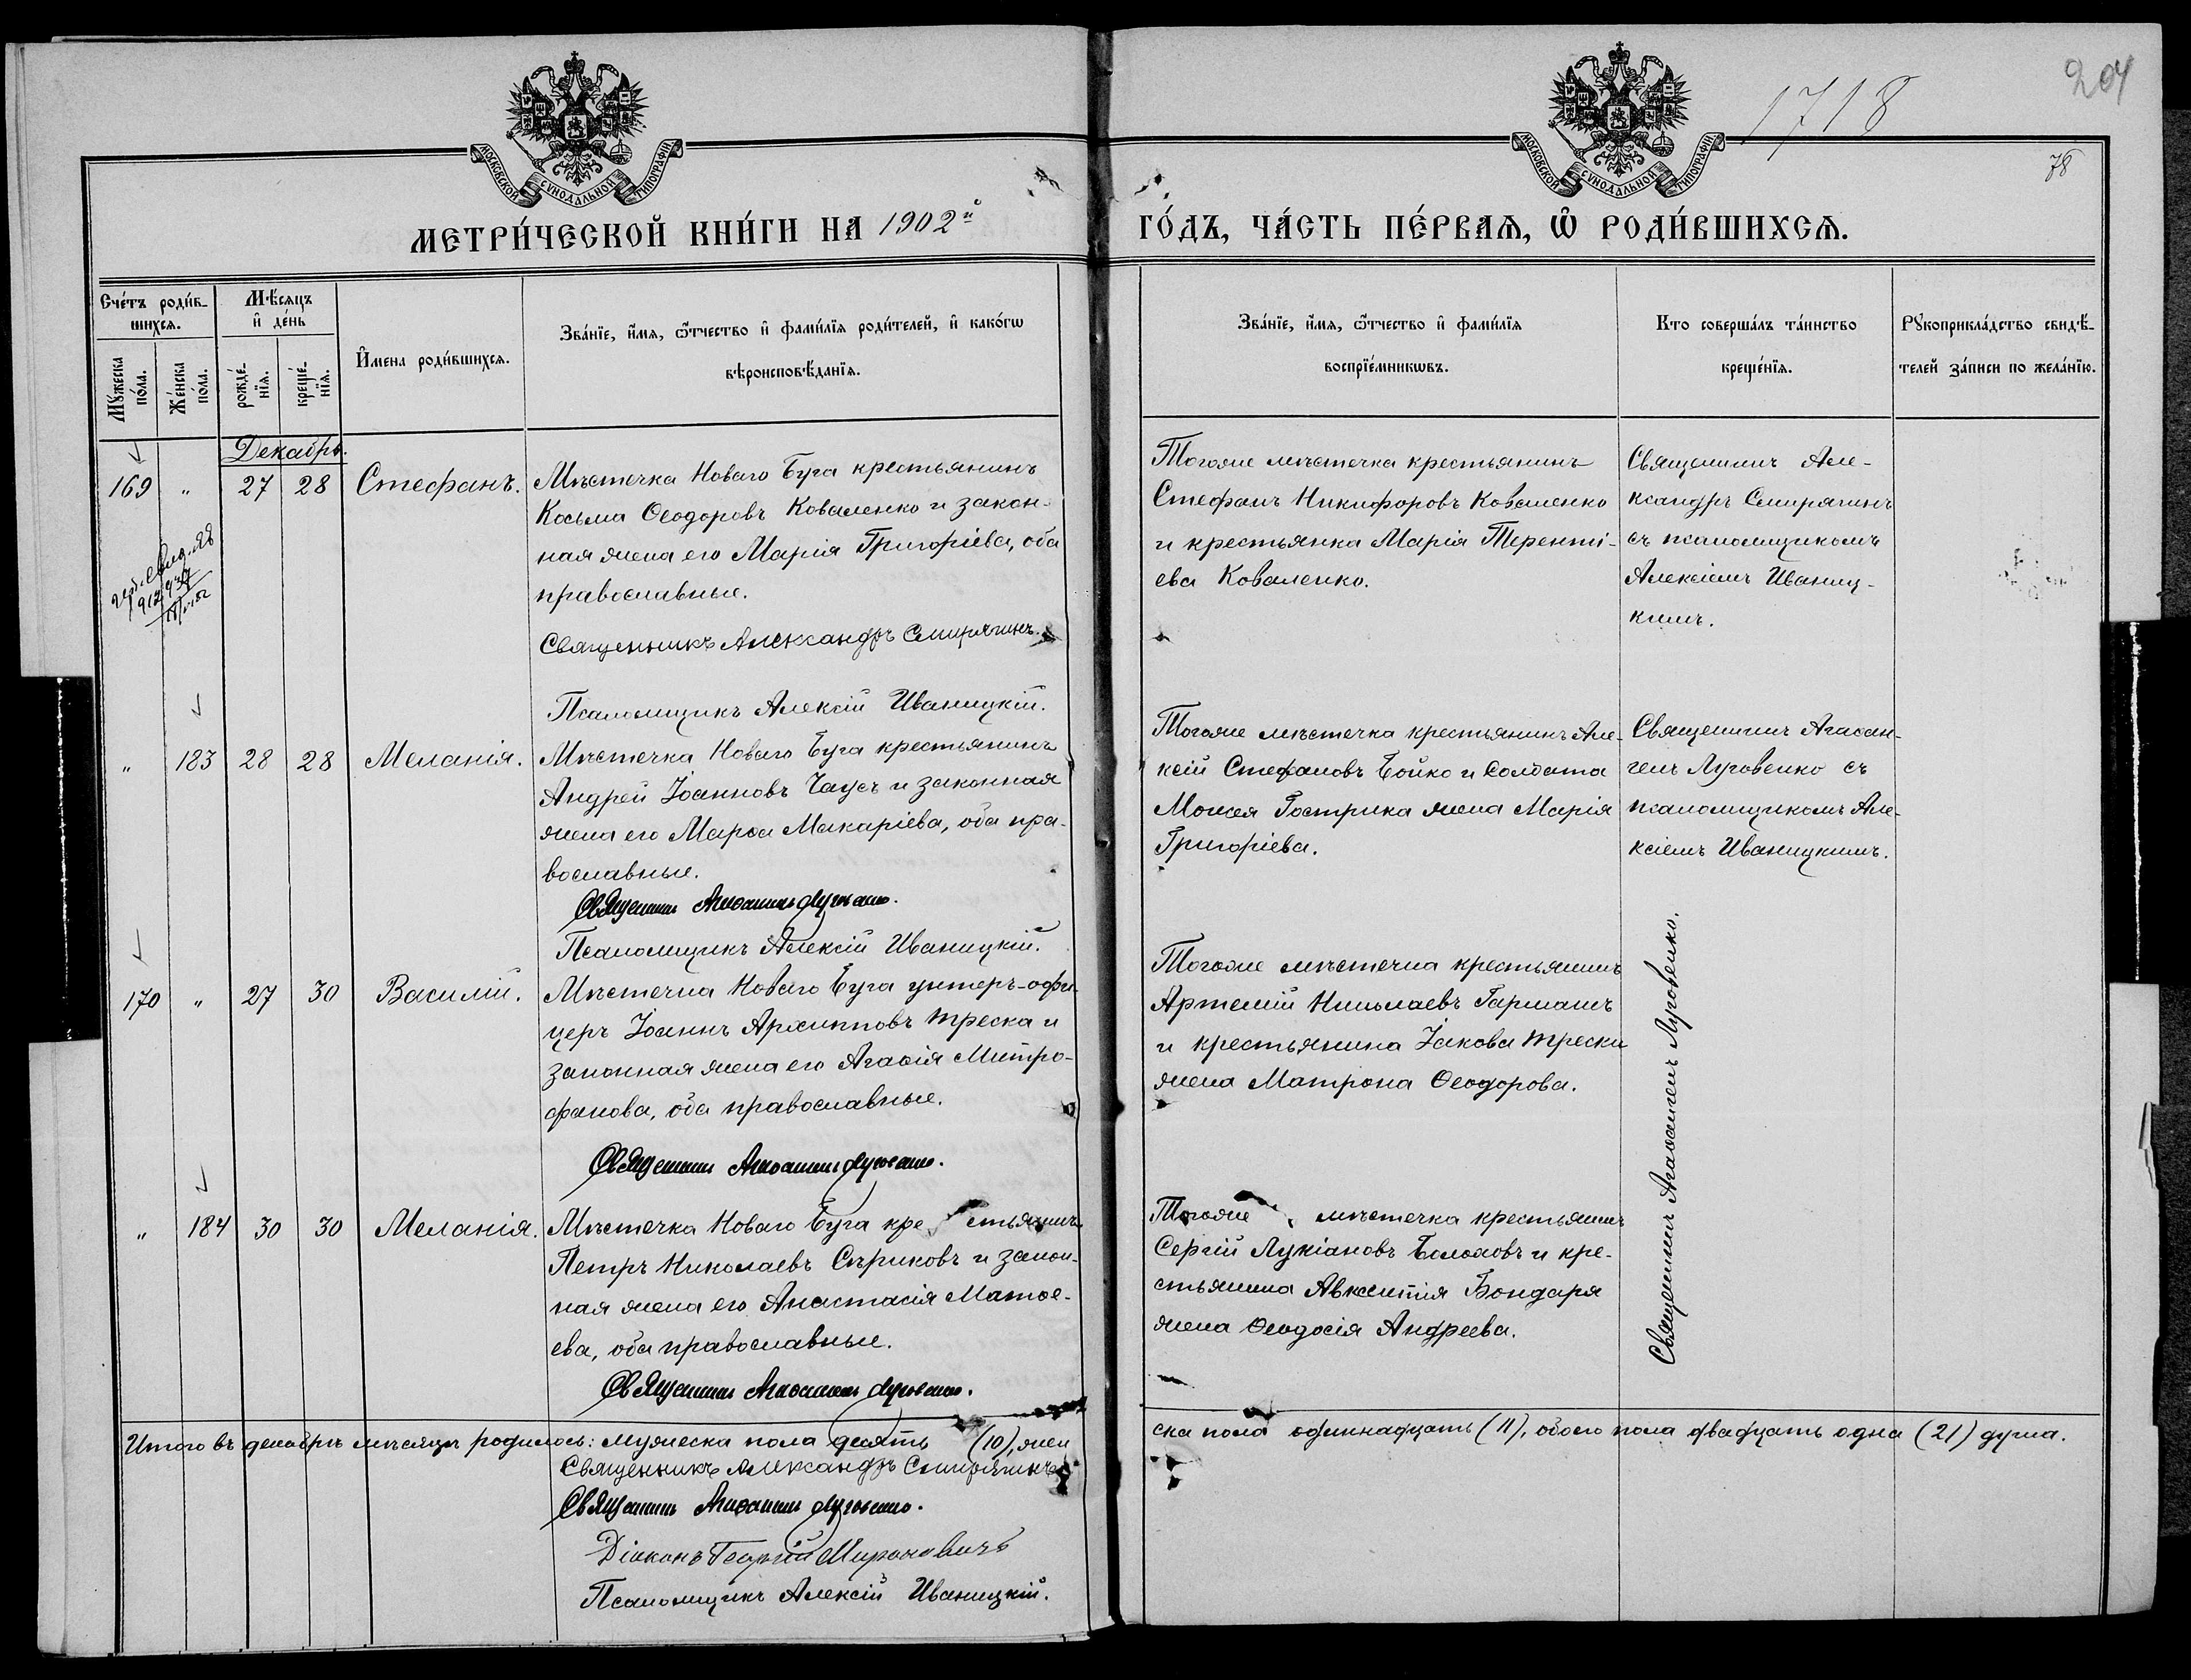 1718
204
78
МОСКОВСКОЙ СѴНОДАЛЬНОЙ ТИПОГРАФІИ
МОСКОВСКОЙ СѴНОДАЛЬНОЙ ТИПОГРАФІИ
МЕТРИ́ЧЕСКОЙ КНИ́ГИ НА 1902й
ГО́ДЪ, ЧА́СТЬ ПЕ́РВАЯ, Ѡ РОДИ́ВШИХСЯ.
Сче́тъ роди́в-
шихся.
Мѣ́сяцъ
и де́нь
Мꙋжеска по́ла.
Же́нска по́ла.
рожде́-нїя.
креще́-нїя.
И́мена роди́вшихся.
Зва́нїе, и́мя, ѻ́тчество и фами́лїя роди́телей, и како́гѡ
вѣроисповѣ́данїя.
Зва́нїе, и́мя, ѻ́тчество и фами́лїя
воспрїе́мникѡвъ.
Кто соверша́лъ та́инство
креще́нїя.
Рꙋкоприкла́дство свидѣ́-
телей за́писи по жела́нїю.
Декабрь.
169 " 27 28 Стефанъ.
Мѣстечка Новаго Буга крестьянинъ
Косьма Ѳеодоровъ Коваленко и закон-
ная жена его Марія Григоріева, оба
православные.
Священникъ Александръ Смирягинъ.
Псаломщикъ Алексій Иваницкій.
Тогоже мѣстечка крестьянинъ
Стефанъ Никифоровъ Коваленко
и крестьянка Марія Терентi-
ева Коваленко.
Священникъ Але-
ксандръ Смирягинъ
съ псаломщикомъ
Алексіемъ Иваниц-
кимъ.
" 183 28 28 Меланія.
Мѣстечка Новаго Буга крестьянинъ
Андрей Іоанновъ Чаусъ и законная
жена его Марѳа Макаріева, оба пра-
вославные.
Священникъ Агаѳангелъ Луговенко.
Псаломщикъ Алексій Иваницкій.
Тогоже мѣстечка крестьянинъ Але-
ксій Стефановъ Бойко и солдата
Моисея Гострика жена Марія
Григоріева.
Священникъ Агаѳан-
гелъ Луговенко съ
псаломщикомъ Але-
ксіемъ Иваницкимъ.
170 " 27 30 Василій.
Мѣстечка Новаго Буга унтеръ-офи-
церъ Іоаннъ Архипповъ Треска и
законная жена его Агаѳія Митро-
фанова, оба православные.
Священникъ Агаѳангелъ Луговенко.
Тогоже мѣстечка крестьянинъ
Артемій Николаевъ Гармашъ
и крестьянина Іакова Трески
жена Матрона Ѳеодорова.
Священникъ Агаѳангелъ Луговенко.
" 184 30 30 Меланія.
Мѣстечка Новаго Буга крестьянинъ
Петръ Николаевъ Сѣриковъ и закон-
ная жена его Анастасія Матѳе-
ева, оба православные.
Священникъ Агаѳангелъ Луговенко.
Тогоже мѣстечка крестьянинъ
Сергій Лукіановъ Болоховъ и кре-
стьянина Авксентія Бондаря
жена Ѳеодосія Андреева.
Итого въ декабрѣ мѣсяцѣ родилось: мужеска пола десять (10), жен
ска пола одиннадцать (11), обоего пола двадцать одна (21) душа.
Священникъ Александръ Смирягинъ
Священникъ Агаѳангелъ Луговенко.
Діаконъ Георгій Мироновичъ
Псаломщикъ Алексій Иваницкій.